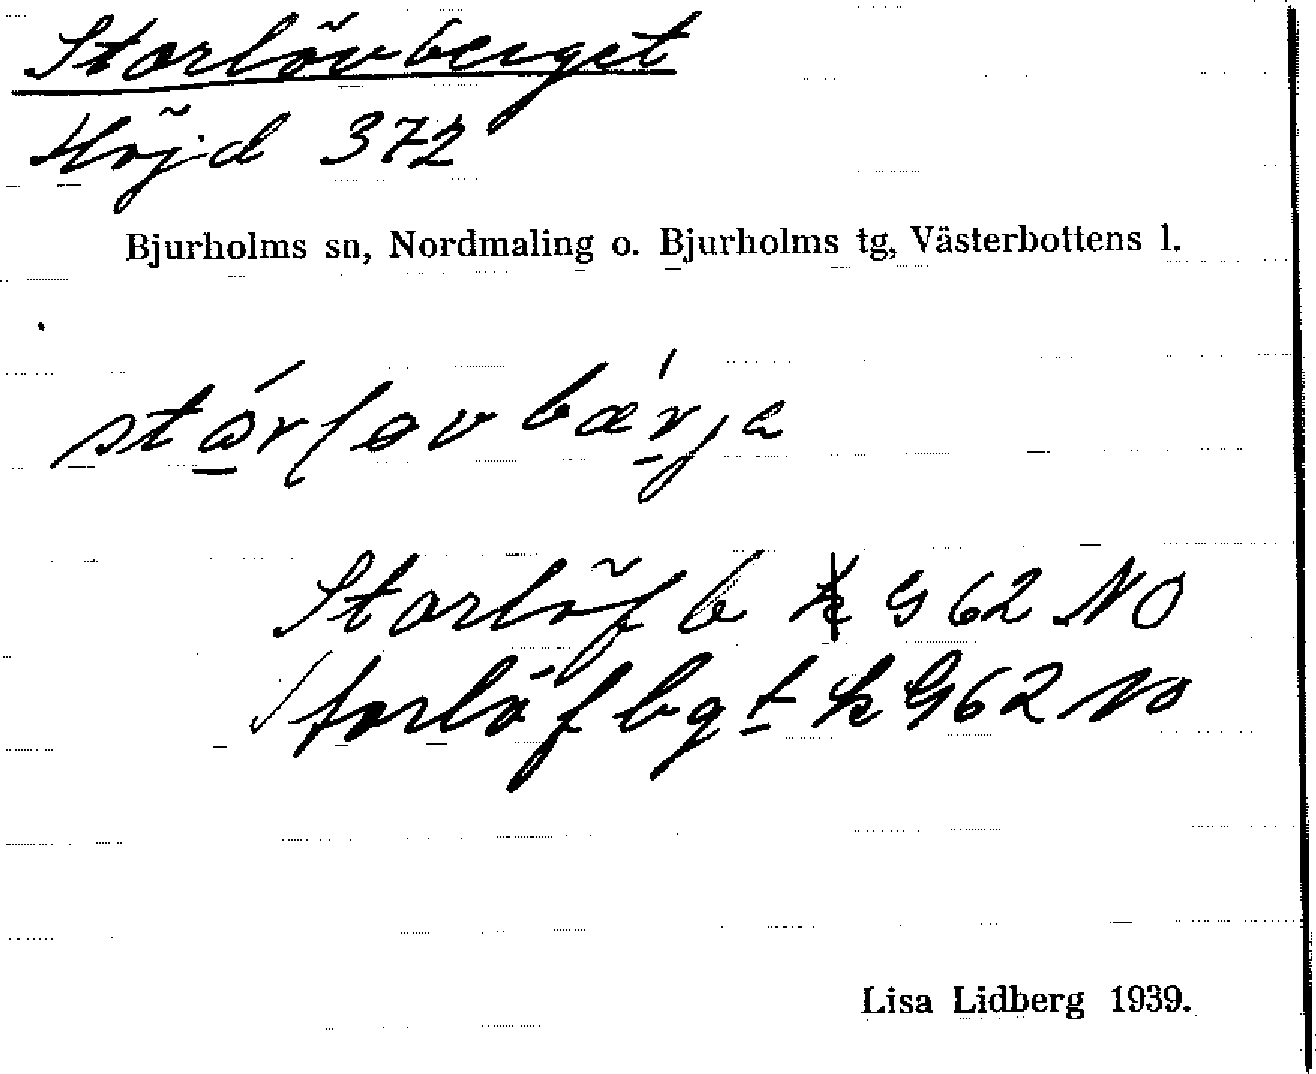 Storlövberget
Höjd 372
Bjurholms sn, Nordmaling o. Bjurholms tg, Västerbottens l.
Storlöf b k G 62 NO
Storlöfbgt k G62 NO
Lisa Lidberg 1939.